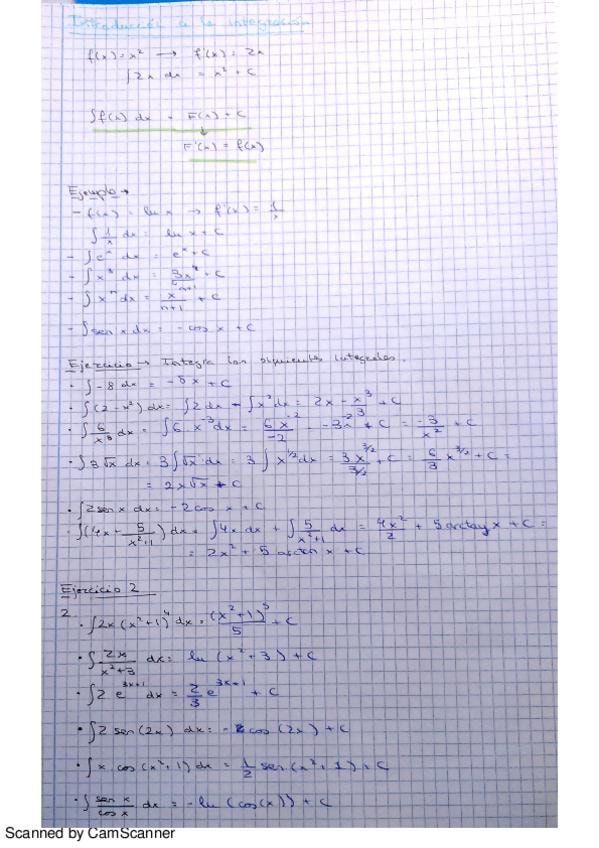 Introducción a la integración
f(x) = x² → f'(x) = 2x
∫2x dx = x² + C
∫f(x) dx = F(x) + C
↓
F'(x) = f(x)
Ejemplo →
- f(x) = ln x → f'(x) = 1/x
∫1/x dx = ln x + C
- ∫eˣ dx = eˣ + C
- ∫x³ dx =
- ∫xⁿ dx = xⁿ⁺¹/(n+1) + C
- ∫sen x dx = -cos x + C
Ejercicio → Integra las siguientes integrales.
• ∫-8 dx = -8x + C
• ∫(2 - x²) dx = ∫2 dx + ∫x² dx = 2x - x³/3 + C
• ∫6/x³ dx = ∫6 x⁻³ dx = 6x⁻²/-2 = -3x⁻² + C = -3/x² + C
• ∫3√x dx = 3∫√x dx = 3∫x^1/2 dx = 3x^3/2/(3/2) + C = 6/3 x^3/2 + C =
= 2x√x + C
• ∫2sen x dx = -2cos x + C
• ∫(4x + 5/(x²+1)) dx = ∫4x dx + ∫5/(x²+1) dx = 4x²/2 + 5 arctag x + C =
= 2x² + 5 arctan x + C
Ejercicio 2
2. • ∫2x(x²+1)⁴ dx = (x²+1)⁵/5 + C
• ∫2x/(x²+3) dx = ln (x²+3) + C
• ∫2 e^3x+1 dx = 2/3 e^3x+1 + C
• ∫2 sen(2x) dx = - cos (2x) + C
• ∫x · cos (x²+1) dx = 1/2 sen (x²+1) + C
• ∫sen x/cos x dx = -ln (cos(x)) + C
Scanned by CamScanner